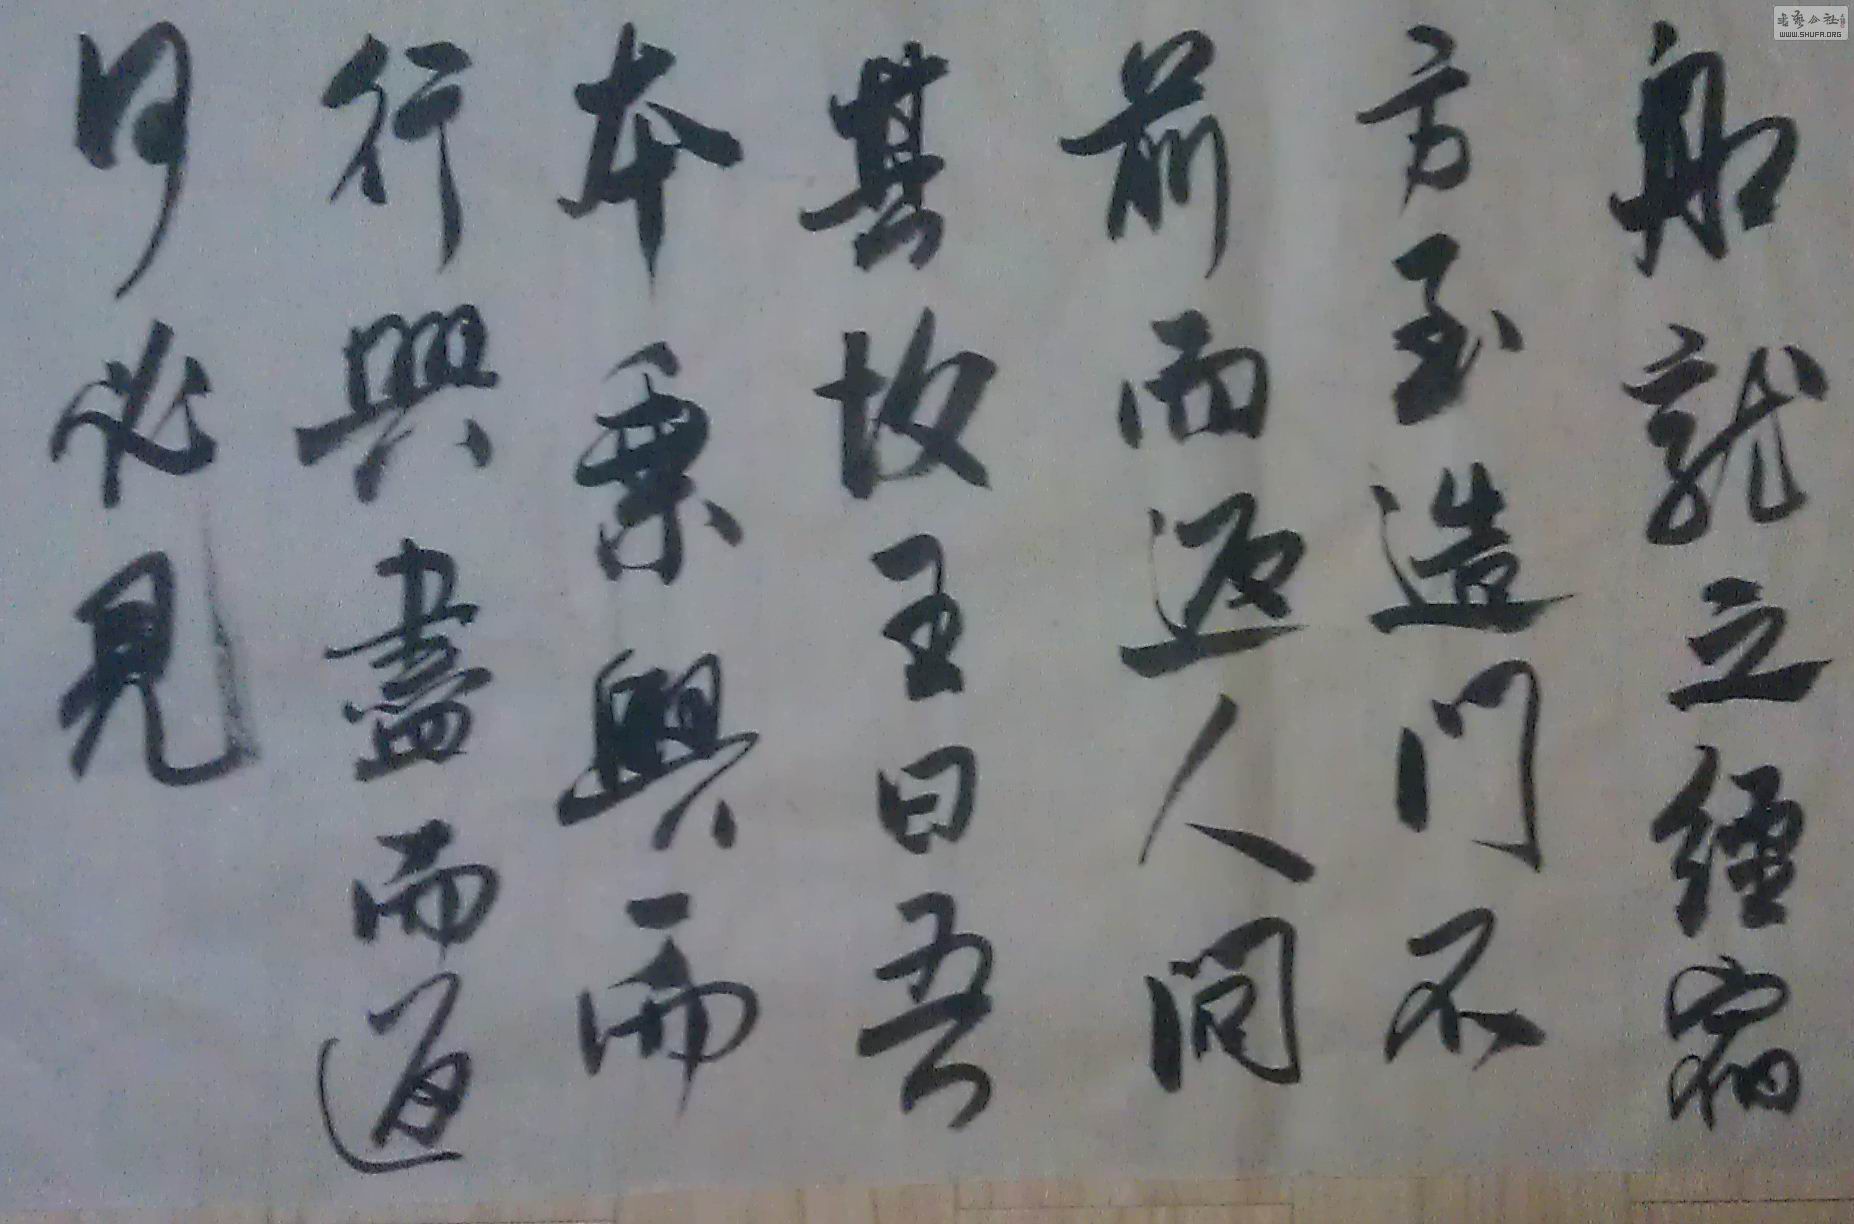 船就之經宿
方至造門不
前而返人問
其故王曰吾
本乘興而
行興盡而返
何必見
书艺公社
WWW.SHUFA.ORG